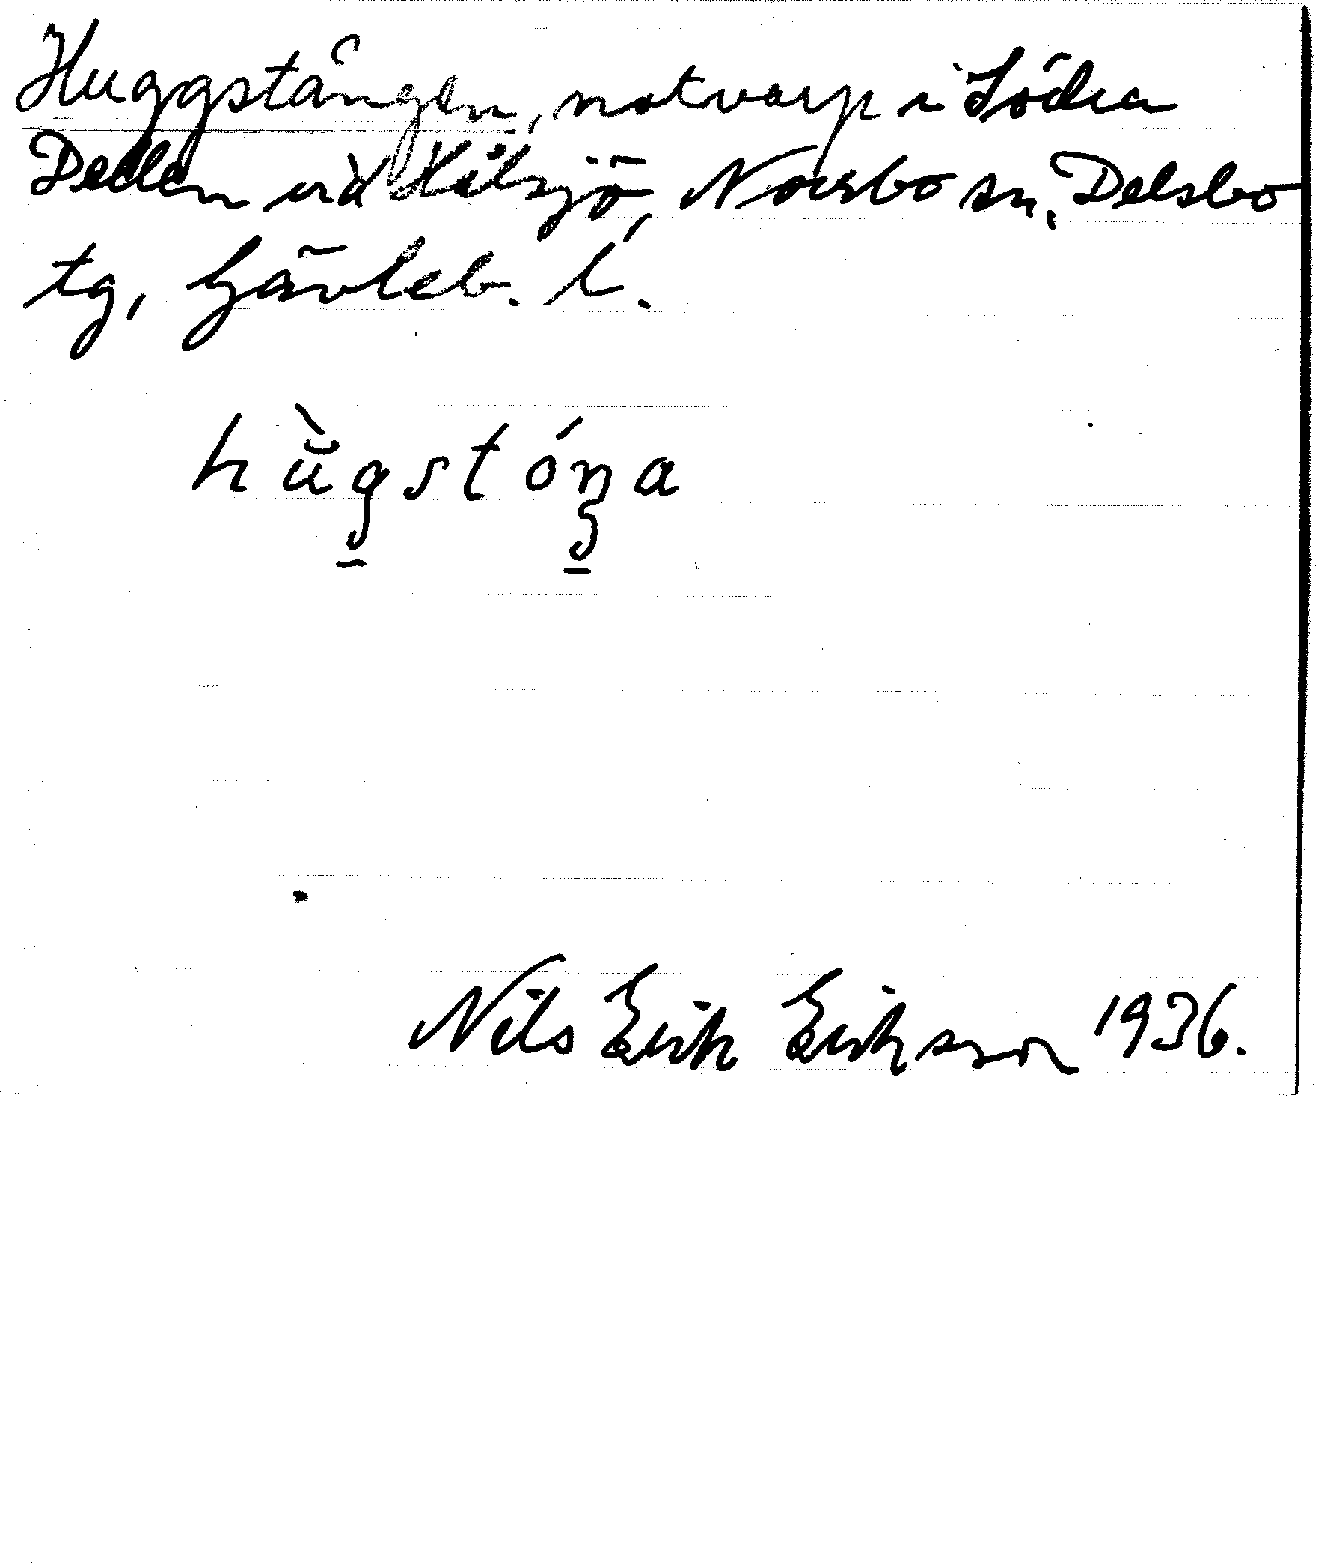 Huggstången, notvarp i Södra
Dellen vid Hålsjö, Norrbo sn, Delsbo
tg, Gävleb. l.
hù̆gstóŋa
Nils Erik Eriksson 1936.